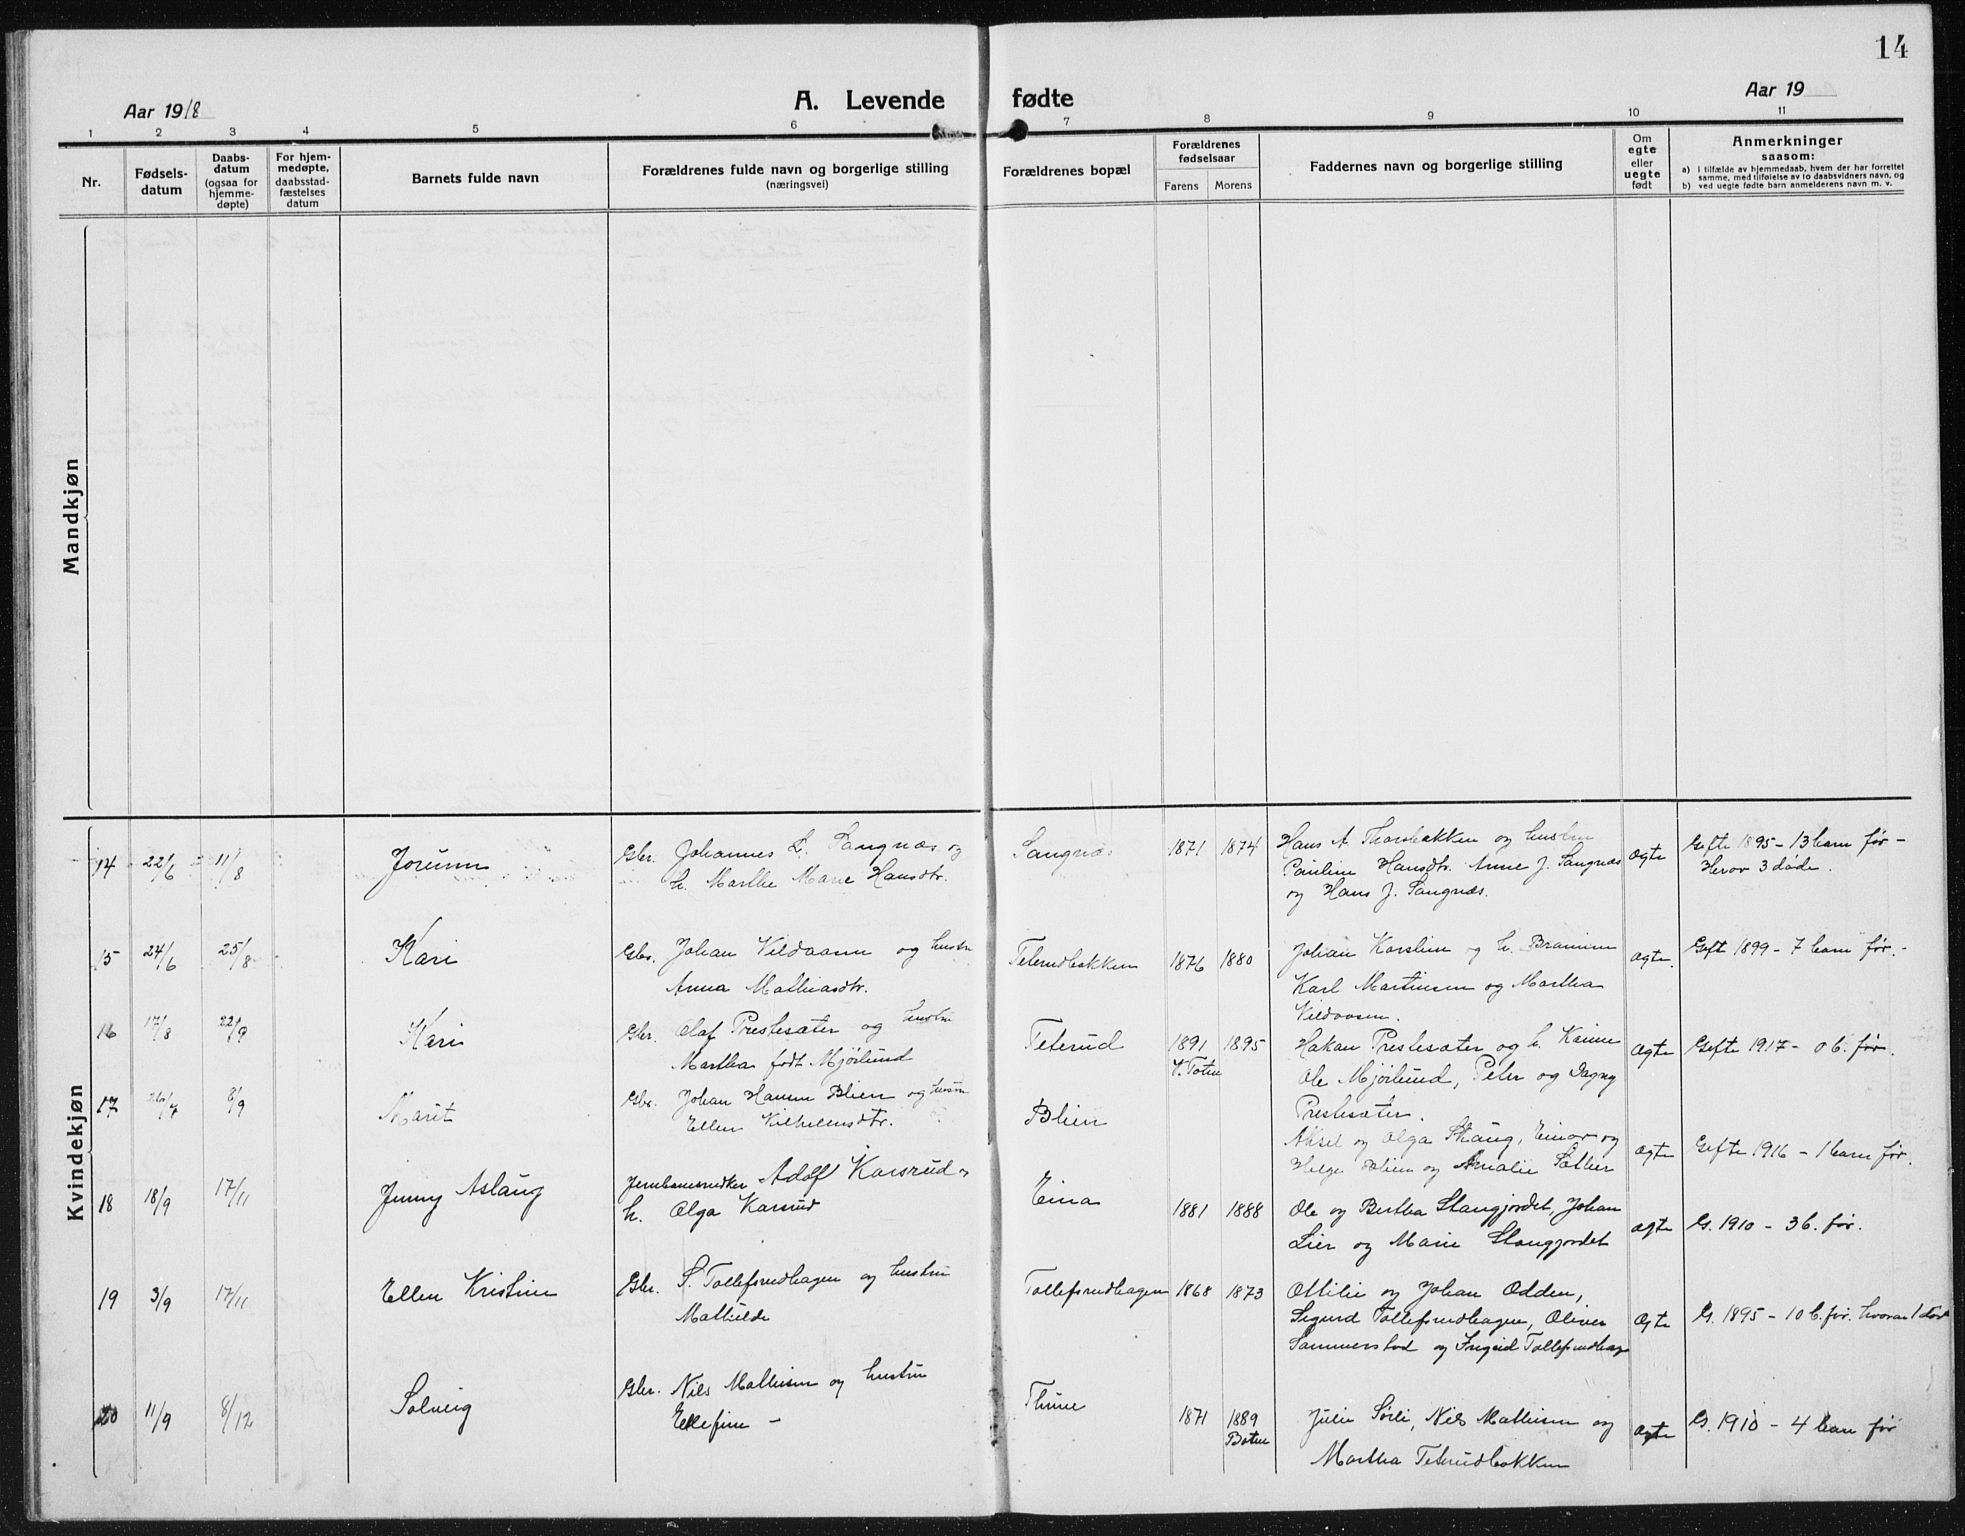 14
Aar 1918
A. Levende fødte
Aar 19
1 2 3 4 5 6 7 8 9 10 11
Nr.
Fødsels-
datum
Daabs-
datum
(ogsaa for
hjemme-
døpte)
For hjem-
medøpte,
daabsstad-
fæstelses
datum
Barnets fulde navn
Forældrenes fulde navn og borgerlige stilling
(næringsvei)
Forældrenes bopæl
Forældrenes
fødselsaar
Farens Morens
Faddernes navn og borgerlige stilling
Om
egte
eller
uegte
født
Anmerkninger
saasom:
a) i tilfælde av hjemmedaab, hvem der har forrettet
samme, med tilføielse av to daabsvidners navn, og
b) ved uegte fødte barn anmelderens navn m. v.
Mandkjøn
Kvindekjøn
14 22/6 11/8 Jorunn
Gbr. Johannes L. Sangnæs og
h. Marthe Marie Hansdtr.
Sangnæs 1871 1874
Hans A. Thonbakken og hustru
Pauline Hansdtr. Anne J. Sangnæs
og Hans J. Sangnæs.
ægte
Gifte 1895 - 13 barn før -
Herav 3 døde.
15 24/6 25/8 Kari
Gbr. Johan Vildaasen og hustru
Anna Mathiasdtr.
Teterudbakken 1876 1880
Johan og h.
Karl Martinsen og Martha
Vildaasen.
ægte
Gift 1899 - 7 barn før.-
16 17/8 22/9 Kari
Gbr. Olaf Prestesæter og hustru
Martha født Mjørlund
Teterud 1891 1895
V. Toten
Hakan Prestesæter og h. Karine
Ole Mjørlund, Peter og Dagny
Prestesæter.
ægte
Gifte 1917 - 0 b. før.
17 26/7 8/9 Marit
Gbr. Johan Hansen Blien og hustru
Ellen Vilhelmsdtr.
Blien
Aksel og Olga Skaug, Einar og
Helge Blien og Amalie Sæther
ægte
Gifte 1916 - 1 barn før.
18 18/9 17/11 Jenny Aslaug
Adolf Karsrud og
h. Olga Karsrud
Eina 1881 1888
Ole og Bertha Stangjordet, Johan
Lier og Marie Stangjordet
ægte
G. 1910 - 3 b. før.
19 3/9 17/11 Ellen Kristine
Gbr. S. Tollefsrudhagen og hustru
Mathilde
Tollefsrudhagen 1868 1873
Ottilie og Johan Odden,
Sigurd Tollefsrudhagen, Oliver
Sammerstad og Ingrid Tollefsrudhag
ægte
G. 1895 - 10 b. før. hvorav 1 død
20 11/9 8/12 Solveig
Gbr. Nils Mathisen og hustru
Ellefine -
Thune 1871 1889
Julie Sørli, Nils Mathisen og
Martha Teterudbakken
ægte
G. 1910 - 4 barn før